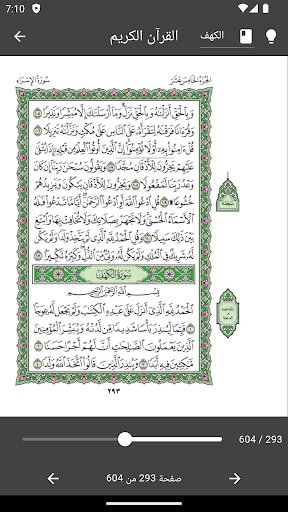 7:10
القرآن الكريم
الكهف
سُورَةُ الإِسْرَاء
الجُزْءُ الخَامِسَ عَشَرَ
وَبِٱلْحَقِّ أَنزَلْنَٰهُ وَبِٱلْحَقِّ نَزَلَ وَمَآ أَرْسَلْنَٰكَ إِلَّا مُبَشِّرًا وَنَذِيرًا ١٠٥
وَقُرْءَانًا فَرَقْنَٰهُ لِتَقْرَأَهُۥ عَلَى ٱلنَّاسِ عَلَىٰ مُكْثٍ وَنَزَّلْنَٰهُ تَنزِيلًا ١٠٦
قُلْ ءَامِنُوا۟ بِهِۦٓ أَوْ لَا تُؤْمِنُوٓا۟ إِنَّ ٱلَّذِينَ أُوتُوا۟ ٱلْعِلْمَ مِن قَبْلِهِۦٓ إِذَا يُتْلَىٰ
عَلَيْهِمْ يَخِرُّونَ لِلْأَذْقَانِ سُجَّدًا ١٠٧ وَيَقُولُونَ سُبْحَٰنَ رَبِّنَآ إِن كَانَ
وَعْدُ رَبِّنَا لَمَفْعُولًا ١٠٨ وَيَخِرُّونَ لِلْأَذْقَانِ يَبْكُونَ وَيَزِيدُهُمْ
خُشُوعًا ۩ ١٠٩ قُلِ ٱدْعُوا۟ ٱللَّهَ أَوِ ٱدْعُوا۟ ٱلرَّحْمَٰنَ أَيًّا مَّا تَدْعُوا۟ فَلَهُ
ٱلْأَسْمَآءُ ٱلْحُسْنَىٰ وَلَا تَجْهَرْ بِصَلَاتِكَ وَلَا تُخَافِتْ بِهَا وَٱبْتَغِ
بَيْنَ ذَٰلِكَ سَبِيلًا ١١٠ وَقُلِ ٱلْحَمْدُ لِلَّهِ ٱلَّذِى لَمْ يَتَّخِذْ وَلَدًا وَلَمْ يَكُن لَّهُۥ
شَرِيكٌ فِى ٱلْمُلْكِ وَلَمْ يَكُن لَّهُۥ وَلِىٌّ مِّنَ ٱلذُّلِّ وَكَبِّرْهُ تَكْبِيرًۢا ١١١
سُورَةُ الكَهْفِ
بِسْمِ ٱللَّهِ ٱلرَّحْمَٰنِ ٱلرَّحِيمِ
ٱلْحَمْدُ لِلَّهِ ٱلَّذِىٓ أَنزَلَ عَلَىٰ عَبْدِهِ ٱلْكِتَٰبَ وَلَمْ يَجْعَل لَّهُۥ عِوَجَا ١
قَيِّمًا لِّيُنذِرَ بَأْسًا شَدِيدًا مِّن لَّدُنْهُ وَيُبَشِّرَ ٱلْمُؤْمِنِينَ
ٱلَّذِينَ يَعْمَلُونَ ٱلصَّٰلِحَٰتِ أَنَّ لَهُمْ أَجْرًا حَسَنًا ٢
مَّٰكِثِينَ فِيهِ أَبَدًا ٣ وَيُنذِرَ ٱلَّذِينَ قَالُوا۟ ٱتَّخَذَ ٱللَّهُ وَلَدًا ٤
سجدة
٢٩٣
604 / 293
صفحة 293 من 604